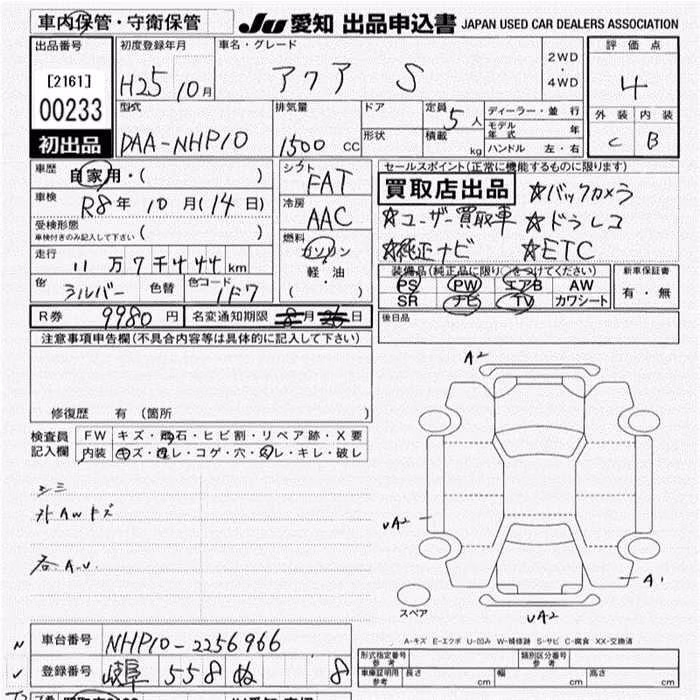 車内保管・守衛保管
JU 愛知 出品申込書 JAPAN USED CAR DEALERS ASSOCIATION
出品番号
[2161]
00233
初出品
初度登録年月
H25 10月
車名・グレード
アクア S
2WD
・
4WD
評価点
4
外装 内装
C B
型式
DAA-NHP10
排気量
1500 CC
ドア
形状
定員
5人
積載
kg
ディーラー・並行
モデル年式 年
ハンドル 左・右
車歴
自家用・( )
車検
R8年 10月(14日)
受検形態
車検付きのみ記入して下さい ( )
走行
11万7千444km
色 シルバー 色替 色コード 1F7
シフト
FAT
冷房
AAC
燃料
ガソリン
軽・油
( )
セールスポイント(正常に機能するものに限ります)
買取店出品 ☆バックカメラ
☆ユーザー買取車 ☆ドラレコ
☆純正ナビ ☆ETC
装備品(純正品に限り○をつけてください)
PS PW エアB AW
SR ナビ TV カワシート
新車保証書
有・無
後日品
R券 9980円 名変通知期限 8月 26日
注意事項申告欄(不具合内容等は具体的に記入して下さい)
修復歴 有 (箇所 )
検査員
記入欄
FW キズ・飛石・ヒビ割・リペア跡・X要
内装 キズ・汚レ・コゲ・穴・スレ・キレ・破レ
外AWキズ
A2
UA2
A1
UA2
スペア
A-キズ E-エクボ U-凹み W-補修跡 S-サビ C-腐食 XX-交換済
車台番号 NHP10-2256966
登録番号 岐阜 558 ぬ 8
形式指定番号
参考
類別区分番号
参考
車庫証明用
参考
長さ cm 幅 cm 高さ cm